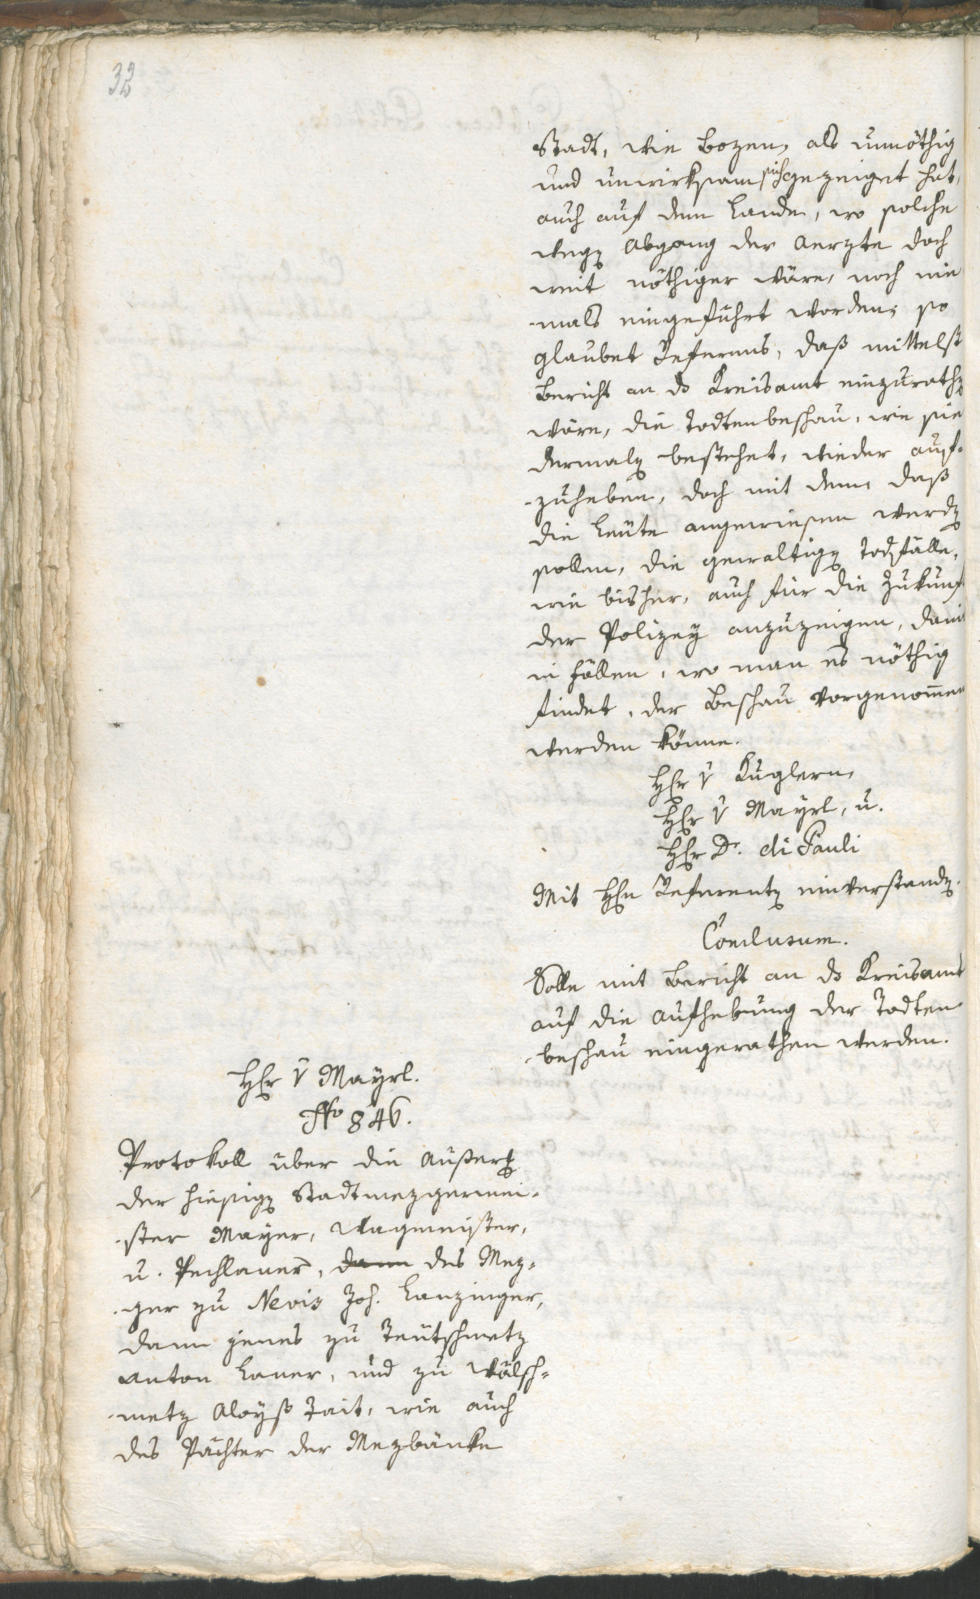 32
Stadt, wie Bozen, als unnöthig
und unwirksam sich gezeiget hat,
auch auf dem Lande, wo solche
weg Abgang der Aerzte doch
weit nöthiger wäre, noch nie
-mals eingeführt worden; so
glaubet Referens, daß mittelst
Bericht an ds Kreisamt einzurathen
wäre, die Todtenbeschau, wie sie
dermalen bestehet, wieder auf-
-zuheben, doch mit deme, daß
die Leute angewiesen werden
sollen, die gewaltigen Todfälle,
wie bisher, auch für die Zukunft
der Polizey anzuzeigen, damit
in Fällen, wo man es nöthig
findet, der Beschau vorgenommen
werden könne.
Hr v Kuglern,
Hr v Mayrl, u.
Hr Dr. di Pauli
Mit Hrn Referenten einverstanden.
Conclusum.
Solle mit Bericht an ds Kreisamt
auf die Aufhebung der Todten-
-beschau eingerathen werden.
Hr v Mayrl.
Nro 846.
Protokoll über die Außerung
der hiesigen Stadtmezgermei-
-ster Mayer, Wagmeister,
u. Pechlaner, dann des Mez-
-ger zu Nevis Joh. Lanzinger,
dann jenes zu Teutschmetz
Anton Laner, und zu Wälsch-
-metz Aloyß Tait, wie auch
des Pächter der Mezbänke